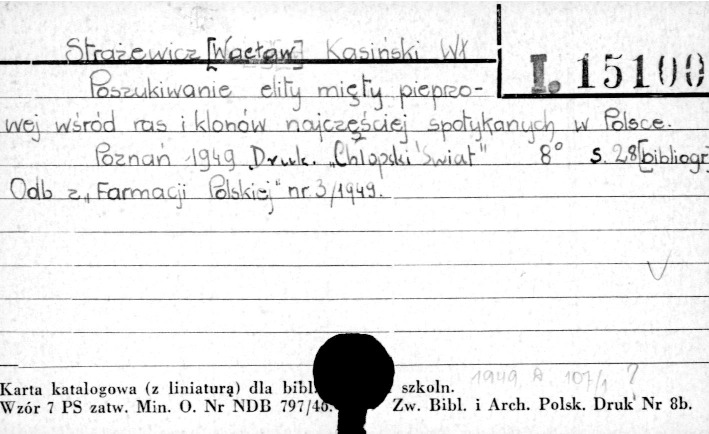 Strażewicz [Wacław] Kasiński Wł
I. 15100
Poszukiwanie elity mięty pieprzo-
wej wśród ras i klonów najczęściej spotykanych w Polsce.
Poznań 1949 Druk. „Chłopski Świat" 8° s. 28 [bibliogr
Odb z „Farmacji Polskiej" nr 3/1949.
1949 A 107/1 ?
Karta katalogowa (z liniaturą) dla bibl. szkoln.
Wzór 7 PS zatw. Min. O. Nr NDB 797/46. Zw. Bibl. i Arch. Polsk. Druk Nr 8b.